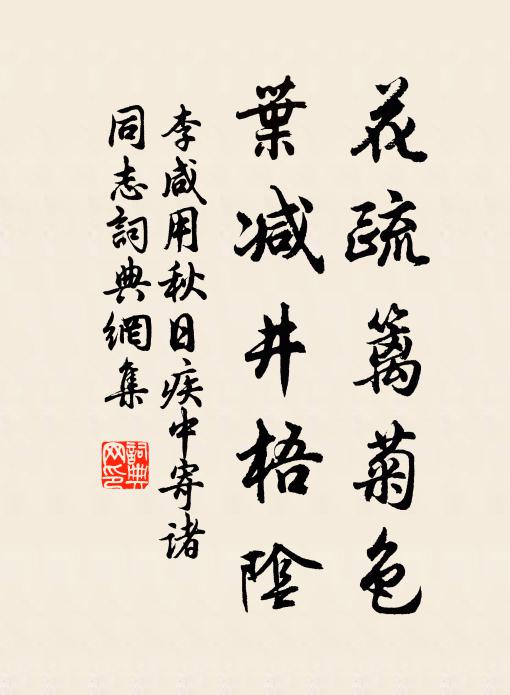 花疏篱菊色
葉减井梧陰
李咸用秋日疾中寄诸
同志詞典網集
詞典
网印